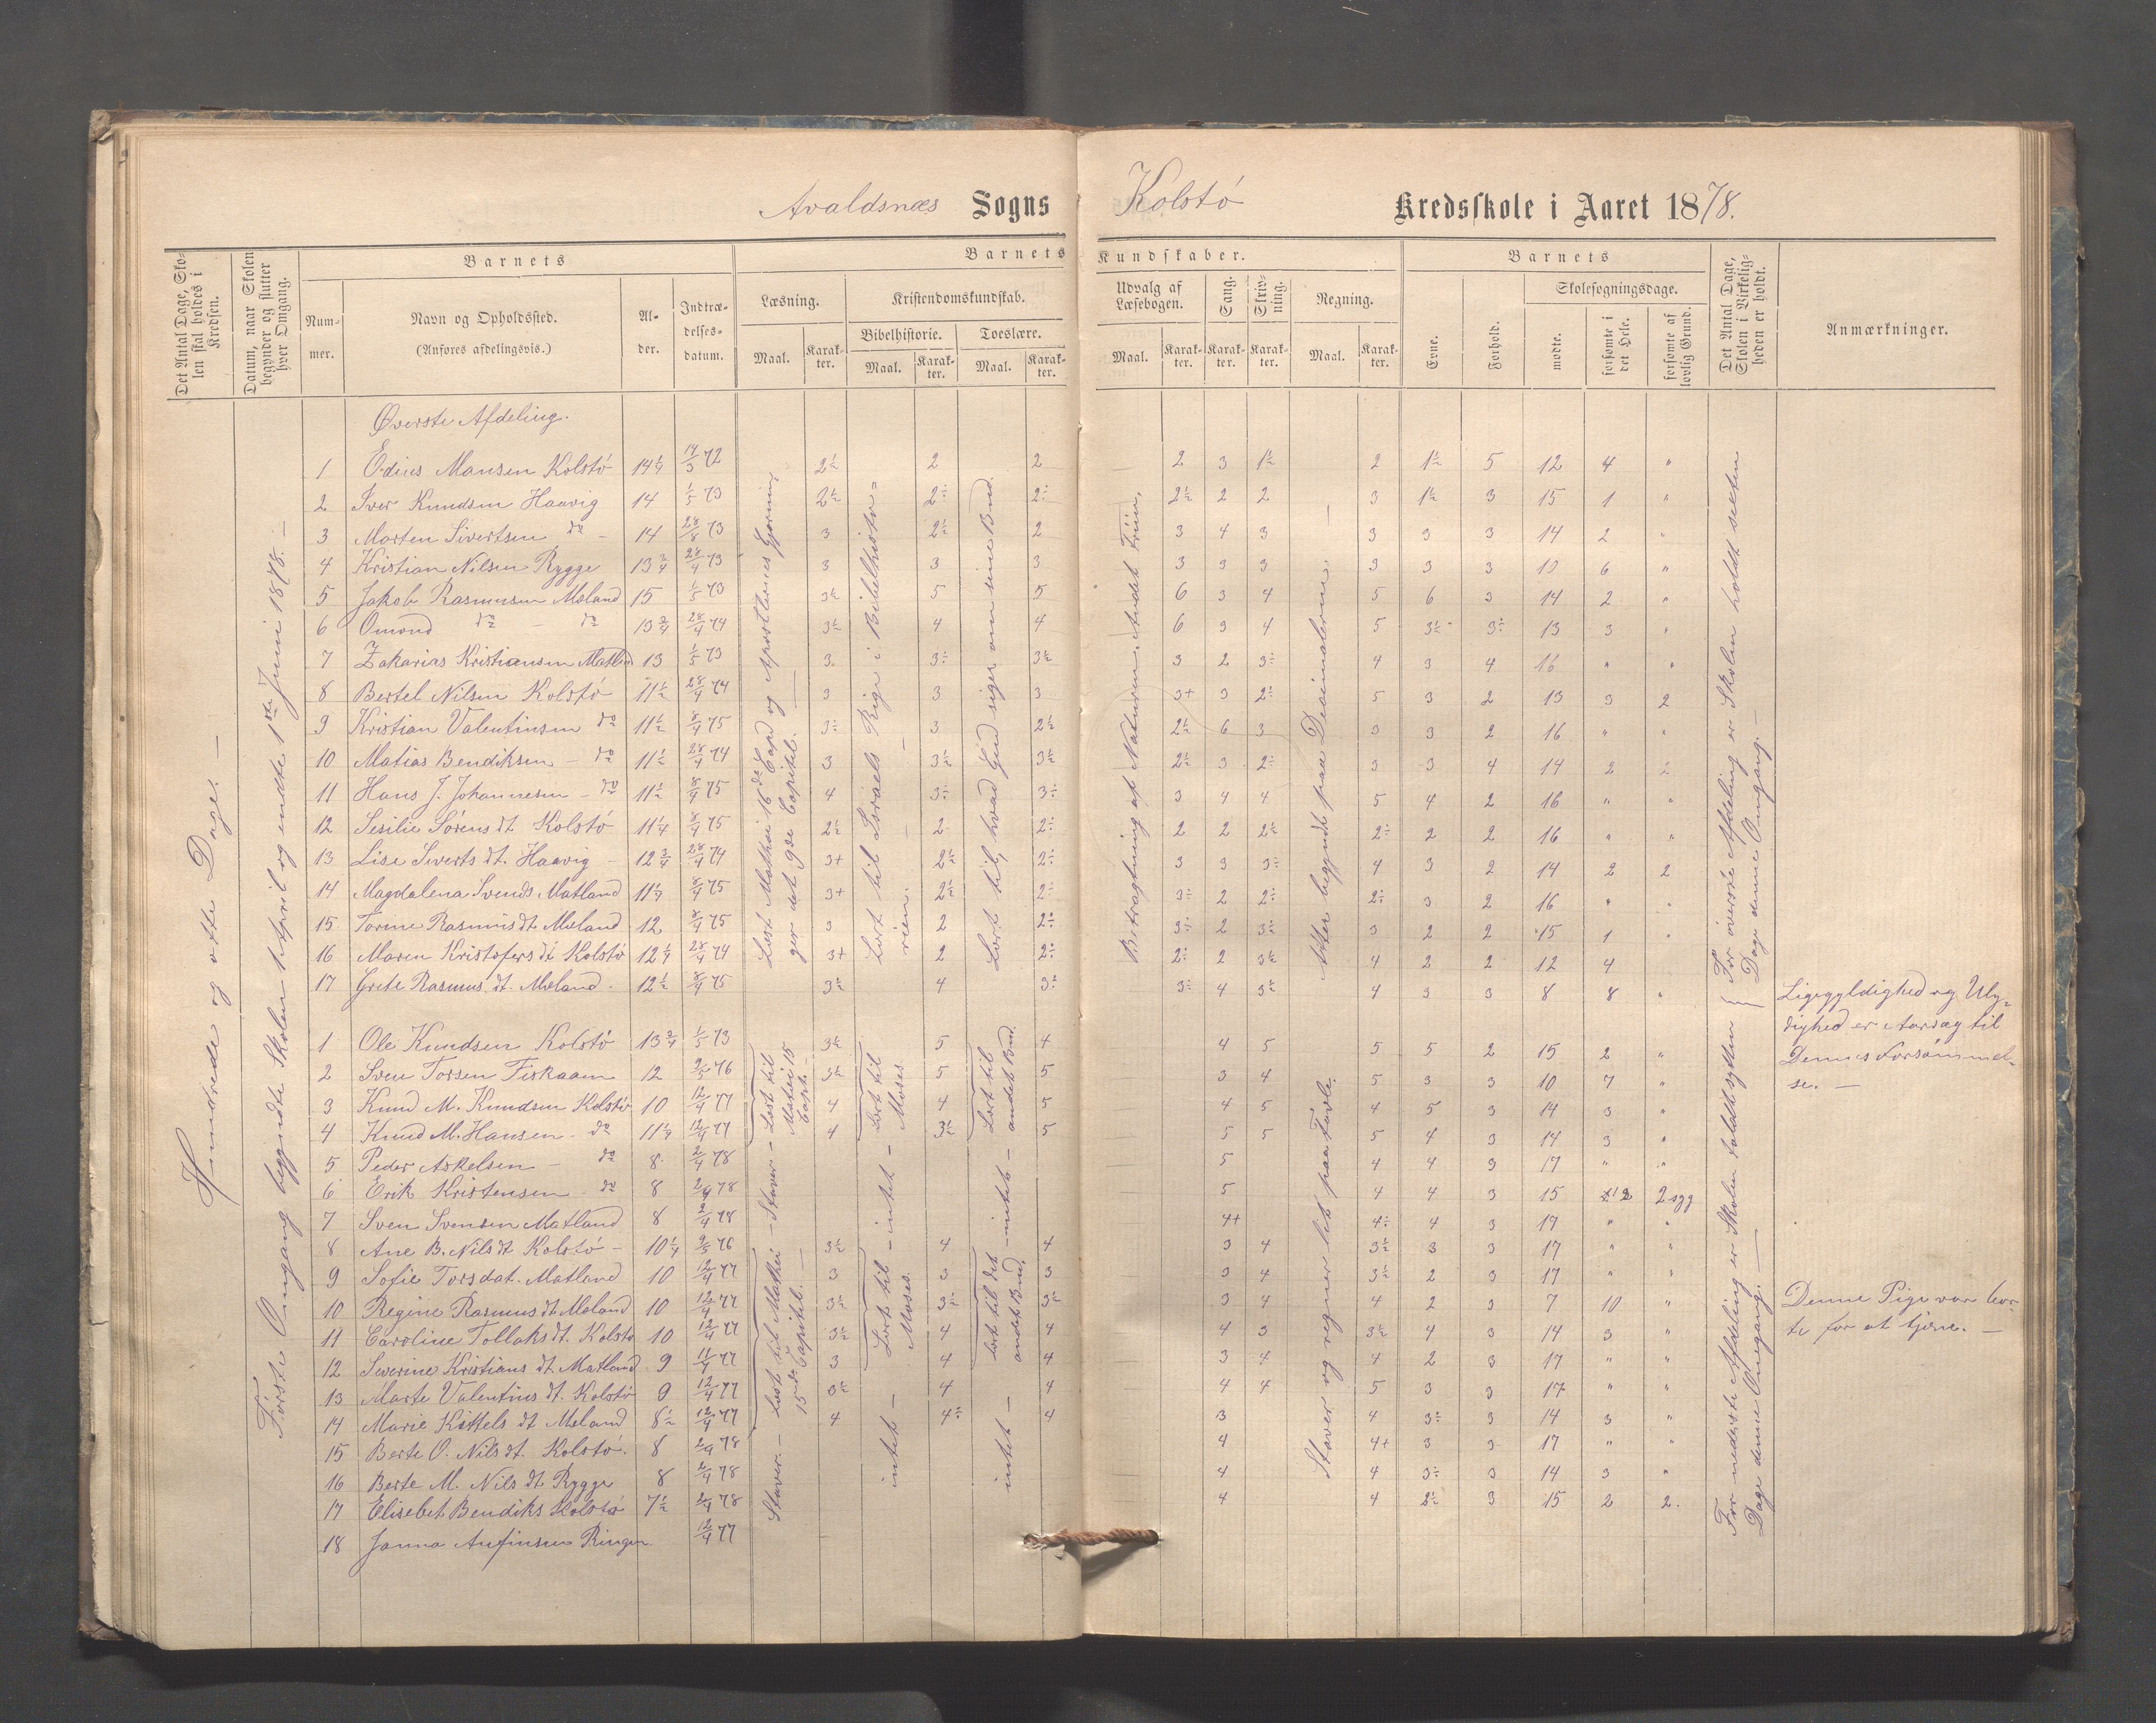 Avaldsnæs Sogns Kolstø Kredsskole i Aaret 1878.
Det Antal Dage, Skolen skal holdes i Kredsen.
Datum, naar Skolen begynder og slutter hver Omgang.
Barnets
Nummer.
Navn og Opholdssted.
(Anføres afdelingsvis.)
Alder.
Indtrædelsesdatum.
Barnets Kundskaber.
Læsning.
Kristendomskundskab.
Bibelhistorie.
Troeslære.
Maal. Karakter. Maal. Karakter. Maal. Karakter.
Udvalg af Læsebogen.
Sang.
Skrivning.
Regning.
Maal. Karakter. Karakter. Karakter. Maal. Karakter.
Barnets
Evne.
Forhold.
Skolesøgningsdage.
mødte.
forsømte i det Hele.
forsømte af lovlig Grund.
Det Antal Dage, Skolen i Virkeligheden er holdt.
Anmærkninger.
Hundrede og otte Dage. —
Første Omgang begyndte Skolen 1 April og endte 1ste Juni 1878. —
Øverste Afdeling.
1 Edius Mansen Kolstø 14¼ 14/3 72 2½ 2 2 2 3 1½ 2 1½ 5 12 4 "
2 Iver Knudsen Haavig 14 1/5 73 2½ 2÷ 2÷ 2½ 2 2 3 1½ 3 15 1 "
3 Morten Sivertsen do 14 28/8 73 3 2½ 2 3 4 3 3 3 3 14 2 "
4 Kristian Nilsen Rygge 13¾ 28/4 73 3 3 3 3 3 3 3 3 3 10 6 "
5 Jakob Rasmusen Mæland 15 1/5 73 3½ 5 5 6 3 4 5 6 3 14 2 "
6 Omond do — do 13¾ 28/4 74 3½ 4 4 6 3 4 5 3½ 3÷ 13 3 "
7 Zakarias Kristiansen Matland 13 1/5 73 3 3÷ 3½ 3 2 3÷ 4 3 4 16 " "
8 Bertel Nilsen Kolstø 11½ 28/4 74 3 3 3 3+ 3 2÷ 5 3 2 13 3 2
9 Kristian Valentinsen do 11½ 8/4 75 3÷ 3 2½ 2½ 6 3 3 3 2 16 " "
10 Matias Bendiksen — do 11½ 28/4 74 3 3½ 3½ 2½ 3 2÷ 3 3 4 14 2 2
11 Hans J. Johannesen — do 11½ 8/4 75 4 3÷ 3÷ 3 4 4 5 4 2 16 " "
12 Sesilie Sørens dt. Kolstø 11¼ 8/4 75 2½ 2 2÷ 2 2 2½ 2÷ 2 2 16 " "
13 Lise Siverts dt. Haavig 12¾ 28/4 74 3+ 2½ 2÷ 3 3 3÷ 4 3 2 14 2 2
14 Magdalena Svends Matland 11¼ 8/4 75 3+ 2½ 2÷ 3÷ 2 2÷ 2÷ 3 2 16 " "
15 Torine Rasmus dt. Mæland 12 8/4 75 3 2 2÷ 3÷ 2 3½ 3 2 2 15 1 "
16 Maren Kristofers dt Kolstø 12¼ 28/4 74 3+ 2 2÷ 2÷ 2 3½ 4 2 2 12 4
17 Grete Rasmus dt. Mæland 12½ 8/4 75 3½ 4 3÷ 3÷ 4 3½ 4 3 3 8 8 "
Læst Mathei 16de Cap og Apostlenes Gjerninger det 9de Capitel.
Lært til Israels Rige i Bibelhistorien.
Lært til, hvad Gud siger om sine Bud.
Betragtning af Naturen. Andet Trin.
Atter begyndt paa Desimalerne. —
For øverste Afdeling er Skolen holdt sexten Dage denne Omgang. —
Ligegyldighed og Uly-
dighed er Aarsag til
Dennes Forsømmel-
se. —
1 Ole Knudsen Kolstø 13¾ 1/5 73 3½ 5 4 4 5 5 5 2 15 2 "
2 Sven Torsen Fiskaaen 12 9/5 76 3½ 5 5 3 4 5 3 3 10 7 "
3 Knud M. Knudsen Kolstø 10 12/4 77 4 4 5 4 5 4 5 3 14 3 "
4 Knud M. Hansen do 11¼ 12/4 77 4 3½ 5 5 5 5 4 3 14 3 "
5 Peder Askelsen — do 8 2/4 78 5 4 4 3 17 " "
6 Erik Kristensen do 8 2/4 78 5 4 4 3 15 2 2 syg
7 Sven Svensen Matland 8 2/4 78 4+ 4÷ 4 3 17 " "
8 Ane B. Nils dt Kolstø — 10¼ 9/5 76 3½ 4 4 3 4 3½ 3 3 17 " "
9 Sofie Torsdat. Matland 10 12/4 77 3 3 3 3 4 3½ 2 3 17 " "
10 Regine Rasmus dt. Mæland 10 12/4 77 3½ 3½ 3½ 3 4 4 2 3 7 10 "
11 Caroline Tollaks dt. Kolstø 10 12/4 77 3½ 4 4 4 3 3½ 4 3 14 3 "
12 Severine Kristians dt. Matland 9 11/4 77 3 4 4 3 4 4 2 3 17 " "
13 Marte Valentins dt. Kolstø 9 12/4 77 3½ 4 4 4 4 5 3 3 17 " "
14 Marie Kittels dt Mæland 8½ 12/4 77 4 4÷ 4 3 4 3÷ 3 14 3 "
15 Berte O. Nils dt. Kolstø 8 2/4 78 4 4+ 3 3 17 " "
16 Berte M. Nils dt Rygge 8 2/4 78 4 4 3÷ 3 14 3 "
17 Elisebet Bendiks Kolstø 7½ 2/4 78 4 4 2½ 3 15 2 2.
18 Janna Anfinsen Ringen 12/4 77
Læst til Mathei 15 Capt.
— Staver —
Læst til Mathei 15de Capitel. —
Staver. —
Lært til Moses
— intet —
Lært til Moses.
intet —
Lært til andet Bud.
— intet —
Lært til det andet Bud.
intet —
Staver og regner lidt paa Tavle.
For nederste Afdeling er Skolen holdt sytten Dage denne Omgang. —
Denne Pige var bor-
te for at tjene. —